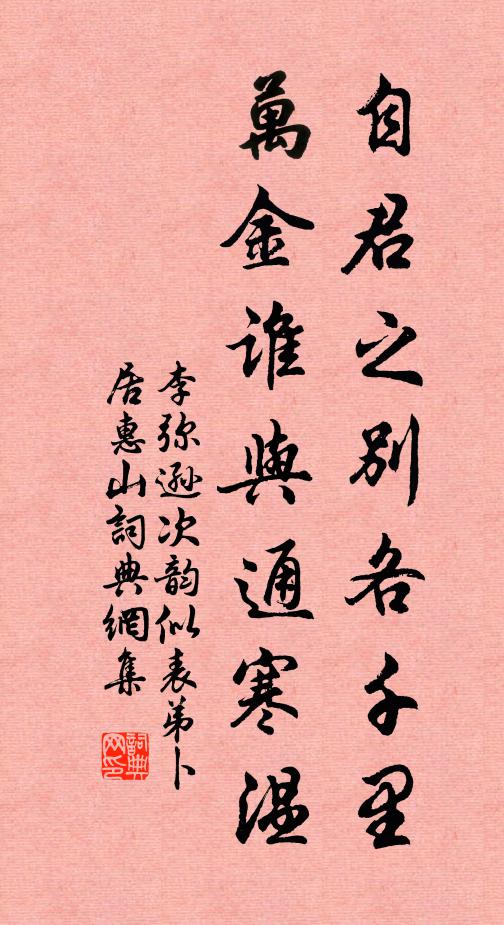 自君之別各千里
萬金誰與通寒温
李弥遜次韵似表弟卜
居惠山詞典網集
詞典網印